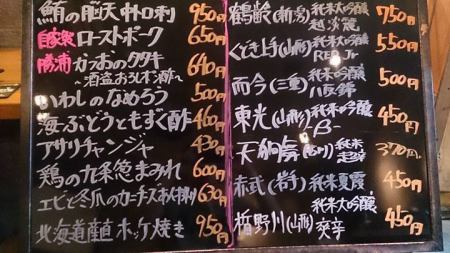 鮪の脳天中トロ刺 950円
自家製 ローストポーク 650円
勝浦 カツオのタタキ 640円
～酒盗おろしオン酢～
いわしのなめろう 500円
海ぶどうともずく酢 460円
アサリチャンジャ 430円
鶏の九条葱まみれ 600円
エビと冬瓜のガーリックチーズ 630円
北海道産直ホッケ焼き 950円
鶴齢(新潟)純米大吟醸 越淡麗 750円
くどき上手(山形)純米大吟醸 Jr 550円
而今(三重)純米吟醸 八反錦 500円
東光(山形)純米大吟醸 -B- 450円
天明 純米 370円
赤武(岩手)純米夏霞 450円
楯野川(山形)純米大吟醸 爽辛 450円